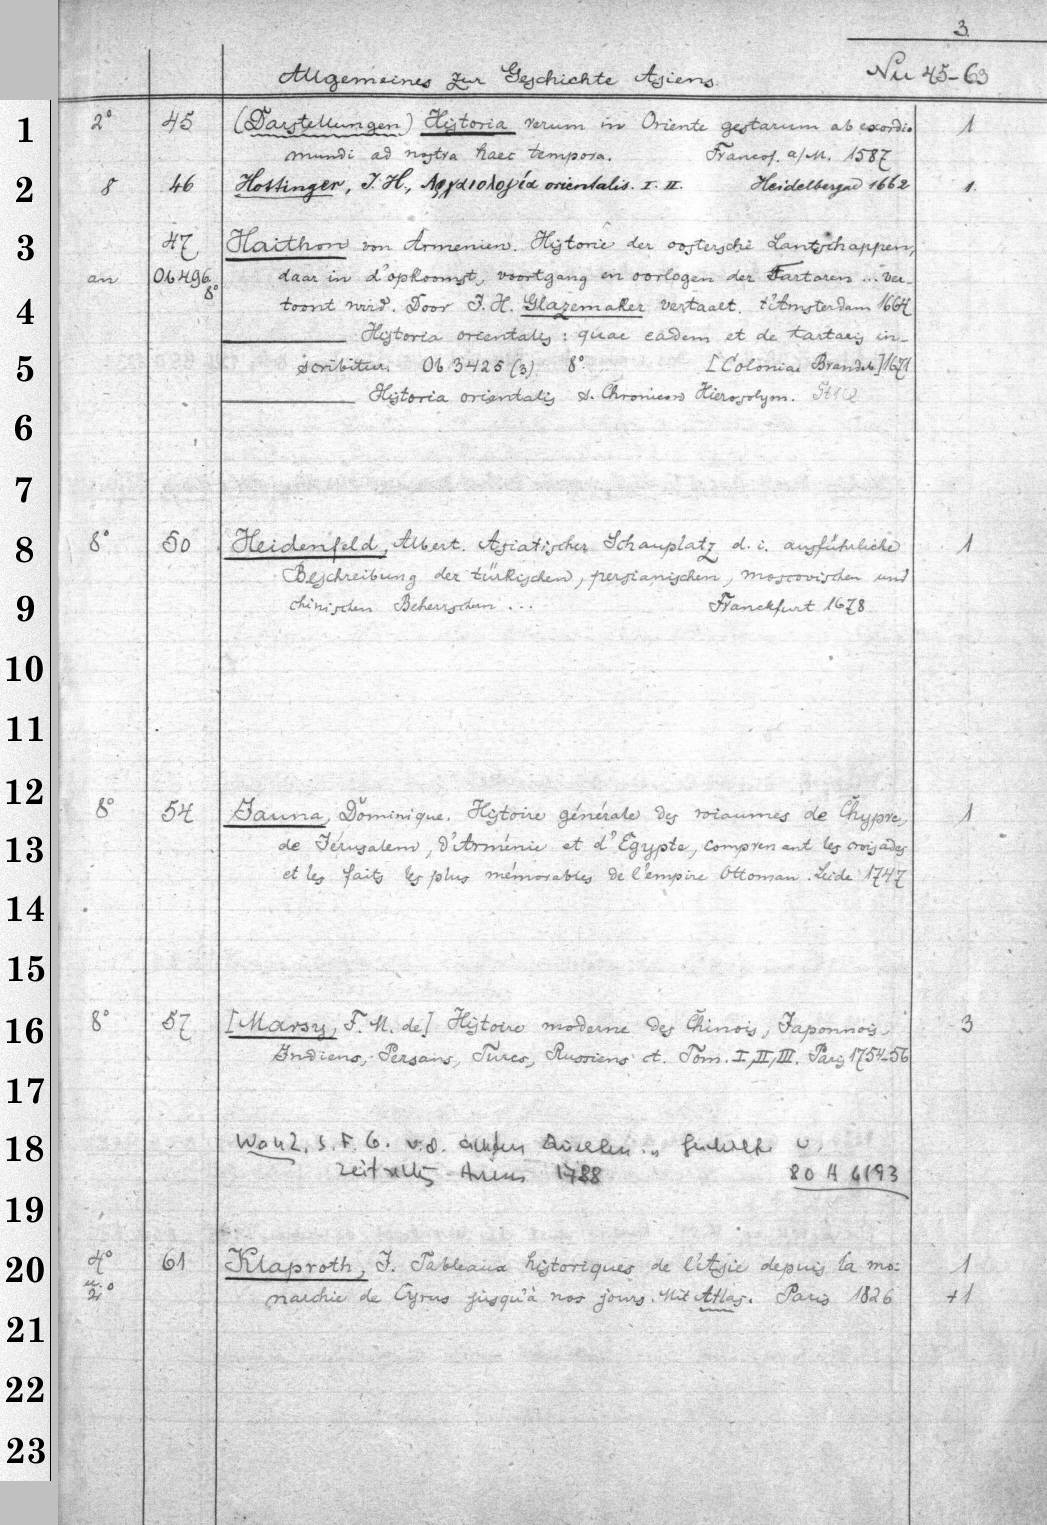 3.
Allgemeines zur Geschichte Asiens. Nu 45-63
1 2° 45 (Darstellungen) Historia rerum in Oriente gestarum ab exordio 1
mundi ad nostra haec tempora. Francof. a/M. 1587
2 8 46 Hottinger, J. H., Ἀρχαιολογία orientalis. I. II. Heidelbergae 1662 1.
3 47 Haithon von Armenien. Historie der oostersche Lantschappen,
an 06496 8° daar in d'opkoomst, voortgang en oorlogen der Tartaren ... ver-
4 toont wird. Door J. H. Glazemaker vertaalt. t'Amsterdam 1664
Historia orientalis: quae eadem et de tartaris in-
5 scribitur. Ob 3425 (3) 8° [Coloniae Brandeb.] 1671
Historia orientalis s. Chronicon Hierosolym.
6
7
8 8° 50 Heidenfeld, Albert. Asiatischer Schauplatz d. i. ausführliche 1
Beschreibung der türkischen, persianischen, moscovischen und
9 chinischen Beherrschern ... Franckfurt 1678
10
11
12 8° 54 Jauna, Dominique. Histoire générale des roiaumes de Chypre, 1
13 de Jérusalem, d'Arménie et d'Egypte, comprenant les croisades
et les faits les plus mémorables de l'empire Ottoman. Leide 1747
14
15
16 8° 57 [Marsy, F. M. de] Histoire moderne des Chinois, Japonnois, 3
Indiens, Persans, Turcs, Russiens et. Tom. I, II, III. Paris 1754-56
17
18 Wahl, S. F. G. v. d. Quellen u.
Asiens 1788 80 A 6193
19
20 4° 61 Klaproth, J. Tableaux historiques de l'Asie depuis la mo- 1
u. 2° narchie de Cyrus jusqu'à nos jours. Mit Atlas. Paris 1826 +1
21
22
23